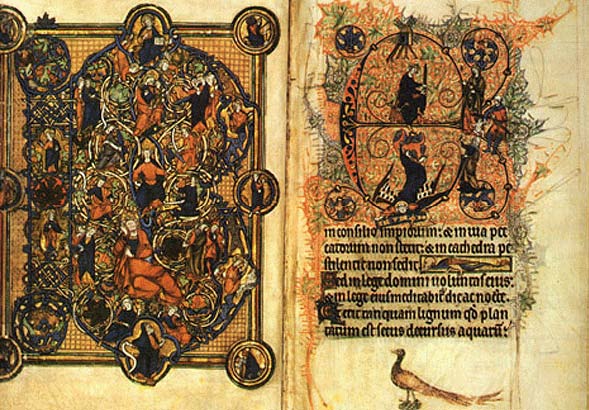 in consilio impiorum: & in uia pec
catorum non stetit: & in cathedra pe
stilencie non sedit.
Sed in lege domini uoluntas eius:
& in lege eius meditabit̛ die ac nocte.
Et erit tanquam lignum qd̛ plan
tatum est secus decursus aquarum: